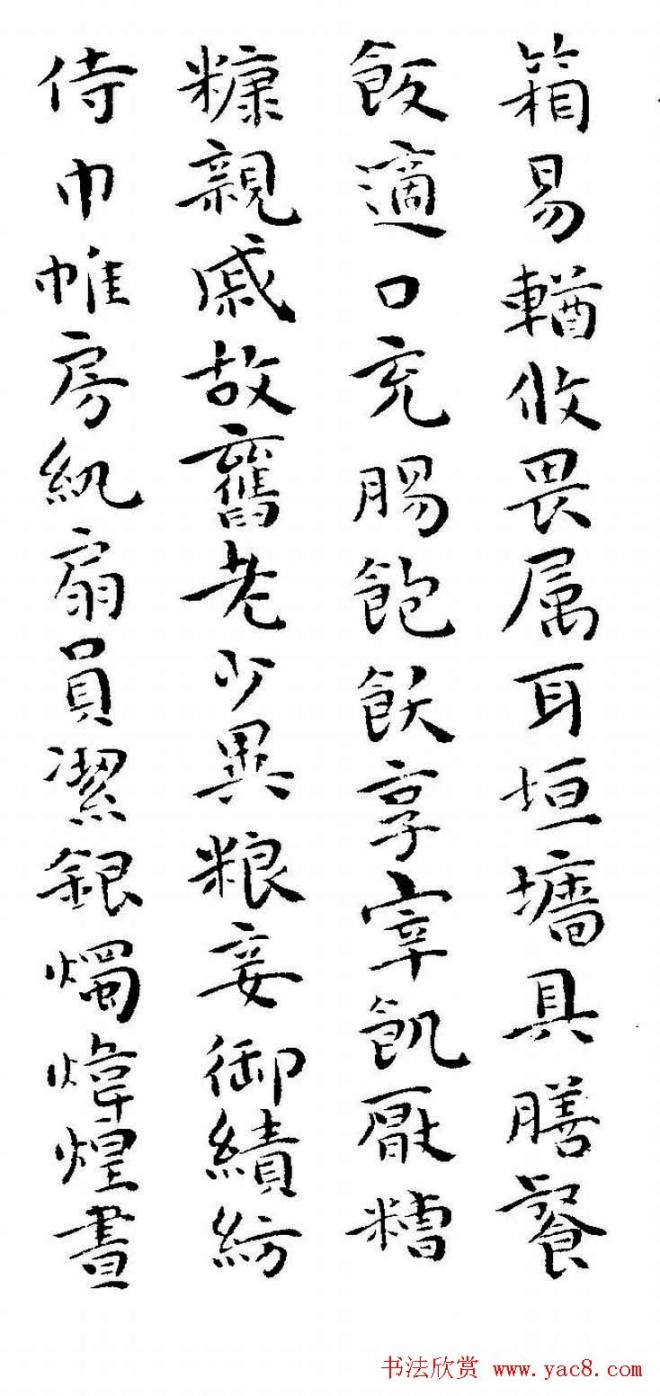 箱易輶攸畏属耳垣墻具膳餐
飯適口充腸飽飫享宰飢厭糟
糠親戚故舊老少異粮妾御績紡
侍巾帷房紈扇員潔銀燭煒煌晝
书法欣赏 www.yac8.com